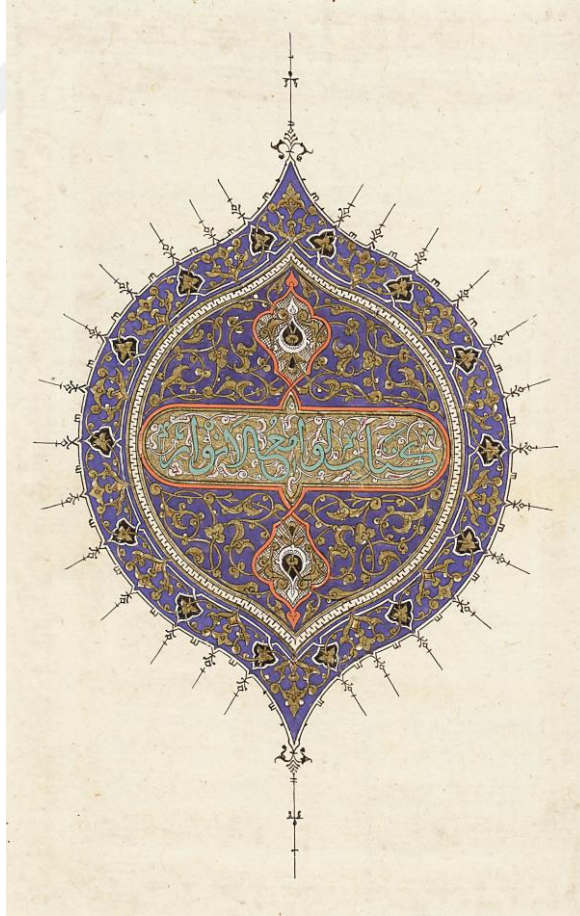 كتاب لوامع الانوار